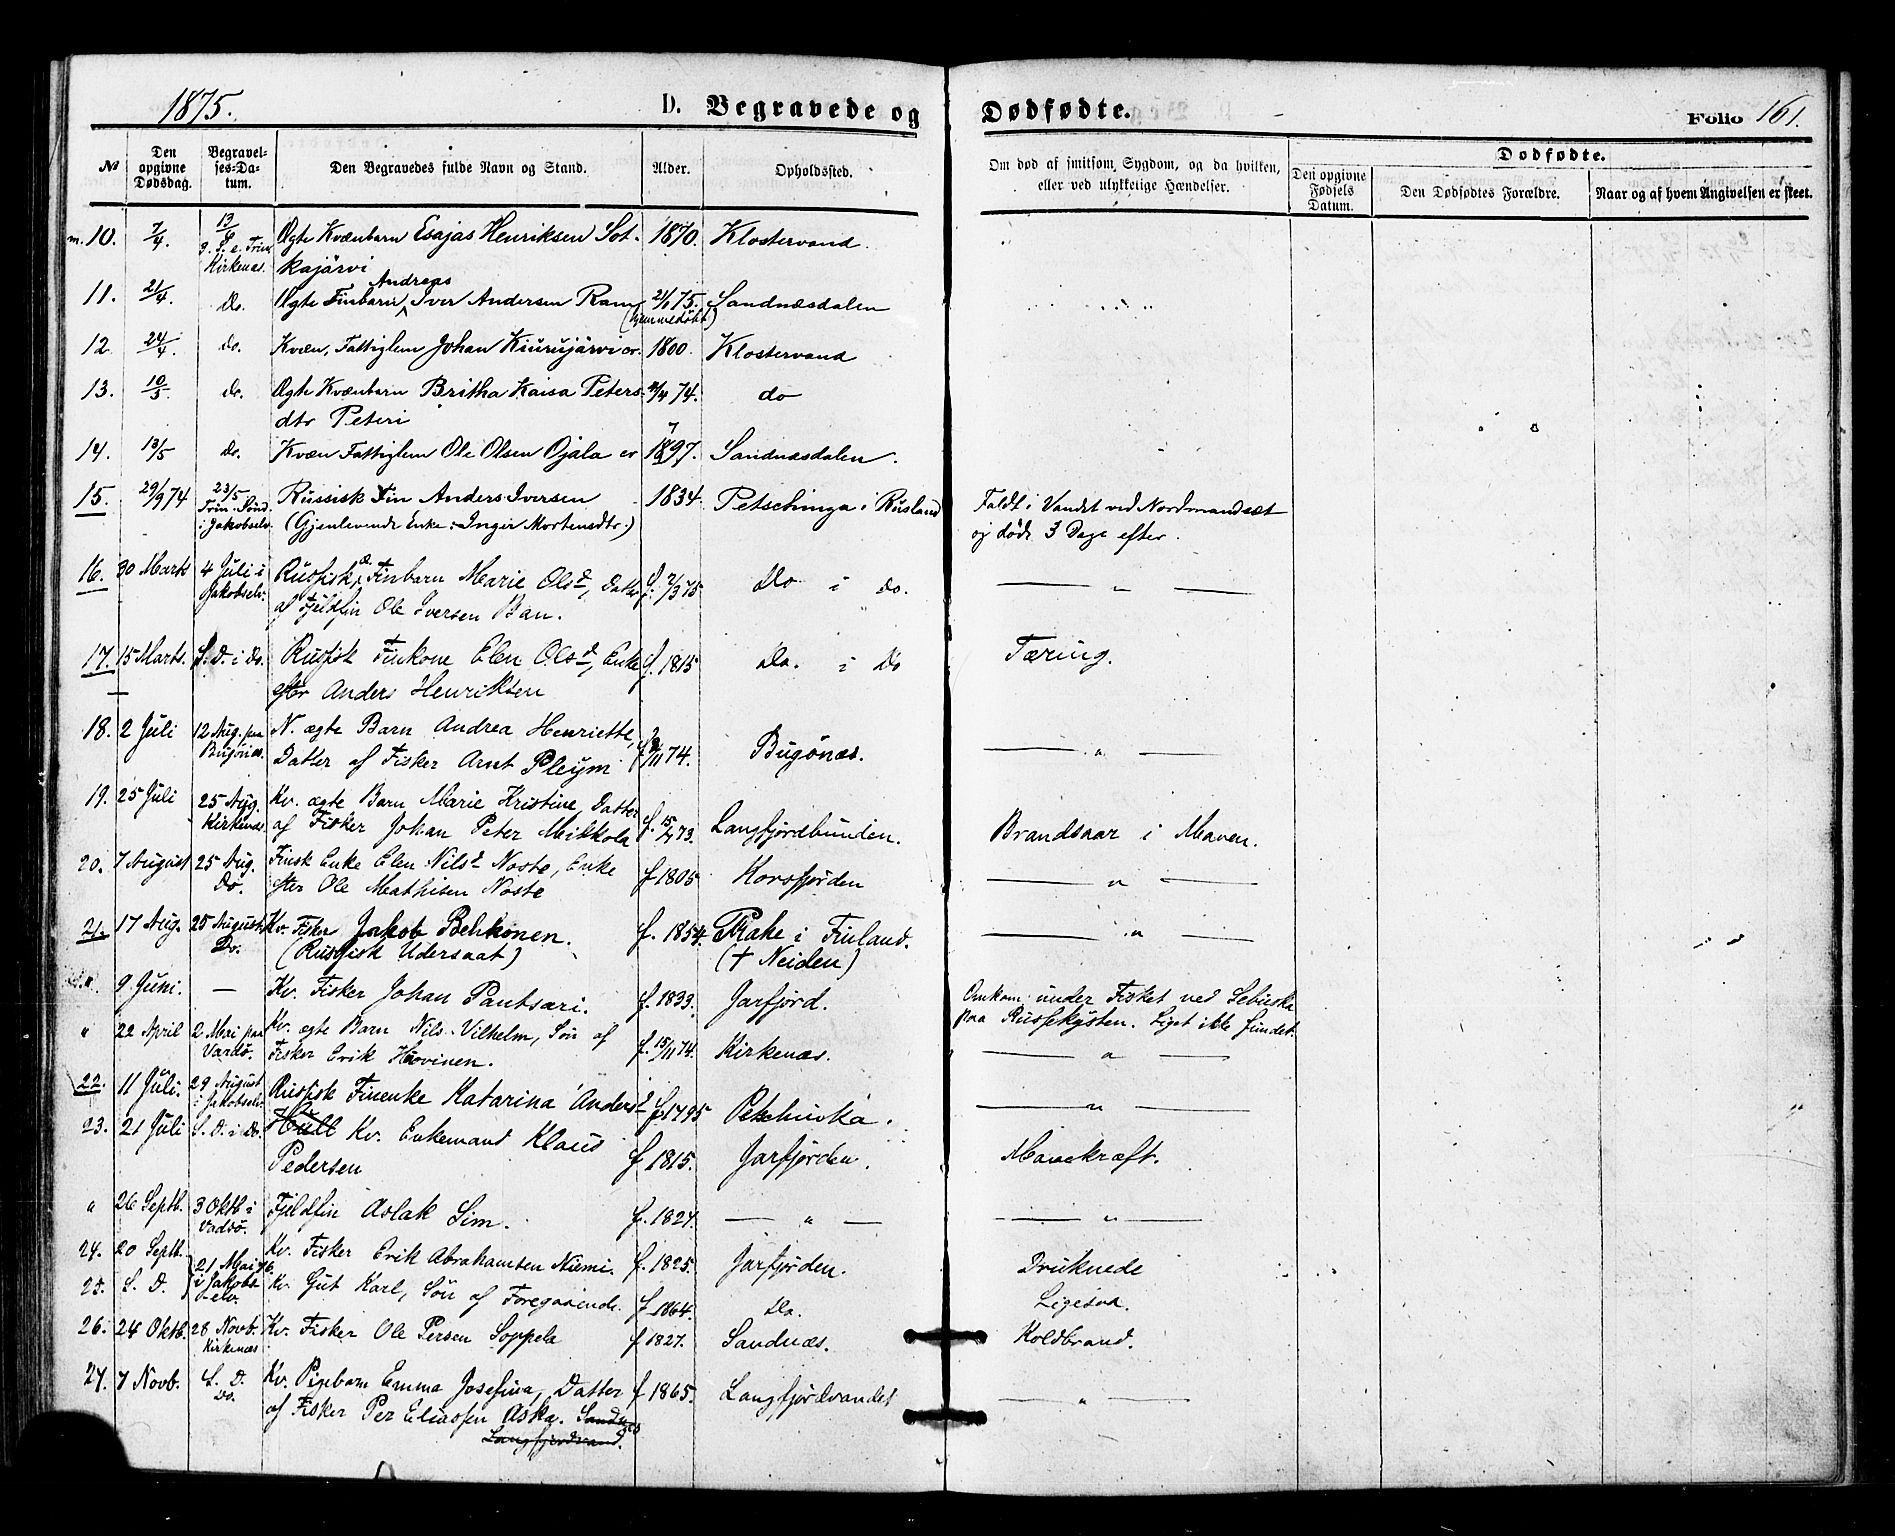 1875. D. Begravede og Dødfødte. Folio 161.
№ Den opgivne Dødsdag. Begravelses-Datum. Den Begravedes fulde Navn og Stand. Alder. Opholdssted. Om død af smitsom Sygdom, og da hvilken, eller ved ulykkelige Hændelser. Dødfødte. Den opgivne Fødsels Datum. Den Dødfødtes Forældre. Naar og af hvem Angivelsen er skeet.
m. 10. 7/4. 13/ Ægte Kvænbarn Esajas Henriksen Sot- 1870. Klostervand.
Kirkenæs. kajärvi
Andreas
11. 21/4. do. Ægte Finbarn, Iver Andersen Ram 21/1 75. Sandnæsdalen
(hjemmedøbt)
12. 24/4. do. Kvæn, Fattiglem Johan Kiurujärvi 1800. Klostervand
13. 10/5. do. Ægte Kvænbarn Britha Kaisa Peters- 74. do
dtr Peteri
14. 13/5 do. Kvæn Fattiglem Ole Olsen Ojala 1797. Sandnæsdalen.
15. 29/9 74 23/5 Russisk Fin Anders Iversen 1834. Petschinga i Rusland Faldt i Vandet ved Nordmandsæt
i Jakobselv. (Gjenlevende Enke: Inger Mortensdtr.) og døde 3 Dage efter.
16. 30 Marts 4 Juli i Russisk Finbarn Marie Olsd, Datter f. 2/3 75 Do i do. — " —
Jakobselv. af Fjeldfin Ole Iversen Ban.
17. 15 Marts. S. D. i Do. Russisk Finkone Elen Olsd, Enke f. 1815 Do. i Do Tæring.
efter Anders Henriksen
18. 2 Juli 12 Aug. paa N. ægte Barn Andrea Henriette,
Bugønæs. Datter af Fisker Arnt Pleym 74. Bugønæs. — " —
19. 25 Juli 25 Aug. Kv. ægte Barn Marie Kristine, Datter
Kirkenæs. af Fisker Johan Peter Mikkola f. 15/ 73. Langfjordbunden. Brandsaar i Maven.
20. 7 August 25 Aug. Finsk Enke Elen Nilsd Noste, Enke
Do. efter Ole Mathisen Noste f 1805 Korsfjorden — " —
21. 17 Aug. 25 August Kv. Fisker Jakob Behkonen. f. 1854. Brahe i Finland. — " —
Do. (Russisk Udersaat) († Neiden)
" 9 Juni. — Kv. Fisker Johan Pantsari. f. 1833. Jarfjord. Omkom under Fisket ved Sebuska
paa Russekysten. Liget ikke fundet.
" 22 April 2 Mai paa Kv. ægte Barn Nils Vilhelm, Søn af
Vardø. Fisker Erik Hovinen. f. 15/11 74. Kirkenæs. — " —
22. 11 Juli. 29 August Russisk Finenke Katarina Andersd f. 1795 Petschinka. — " —
i Jakobselv
23. 21 Juli S. D. i Do. Kv. Enkemand Klaus
Pedersen f 1815. Jarfjorden. Mavekræft.
" 26 Septb. 3 Oktb i Fjeldfin Aslak Sim. f. 1824. — " — — " —
Vadsø.
24. 20 Septb. Kv. Fisker Erik Abrahamsen Niemi. f. 1825. Jarfjorden. Druknede
21 Mai 76.
25. S. D. i Jakobs- Kv. Gut Karl, Søn af Foregaaende. f 1864. Do. Ligesaa.
elv.
26. 24 Oktb. 28 Novb. Kv. Fisker Ole Persen Soppela f 1827. Sandnæs. Koldbrand.
Kirkenæs
27. 7 Novb. S. D. Kv. Pigebarn Emma Josefina, Datter f 1865. Langfjordvandet — " —
Do. af Fisker Per Eliassen Aska. Sandnes
Langfjordvand.